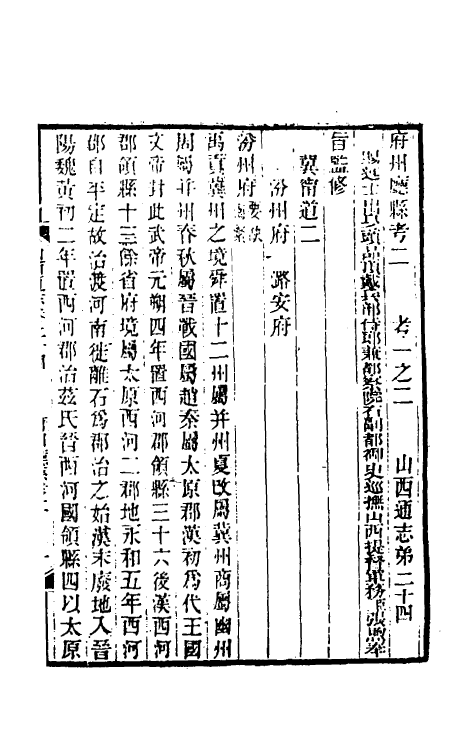 府州廳縣考二 考一之二 山西通志第二十四
賜進士出身頭品頂戴兵部侍郎兼都察院右副都御史巡撫山西提督軍務張
旨監修
冀甯道二
汾州府 潞安府
汾州府
禹貢冀州之境舜置十二州屬并州夏改屬冀州商屬幽州
周屬并州春秋屬晉戰國屬趙秦屬太原郡漢初爲代王國
文帝封此武帝元朔四年置西河郡領縣三十六後漢西河
郡領縣十三餘省府境屬太原西河二郡地永和五年西河
郡自平定故治渡河南徙離石爲郡治之始漢末廢地入晉
陽魏黃初二年置西河郡治茲氏晉西河國領縣四以太原